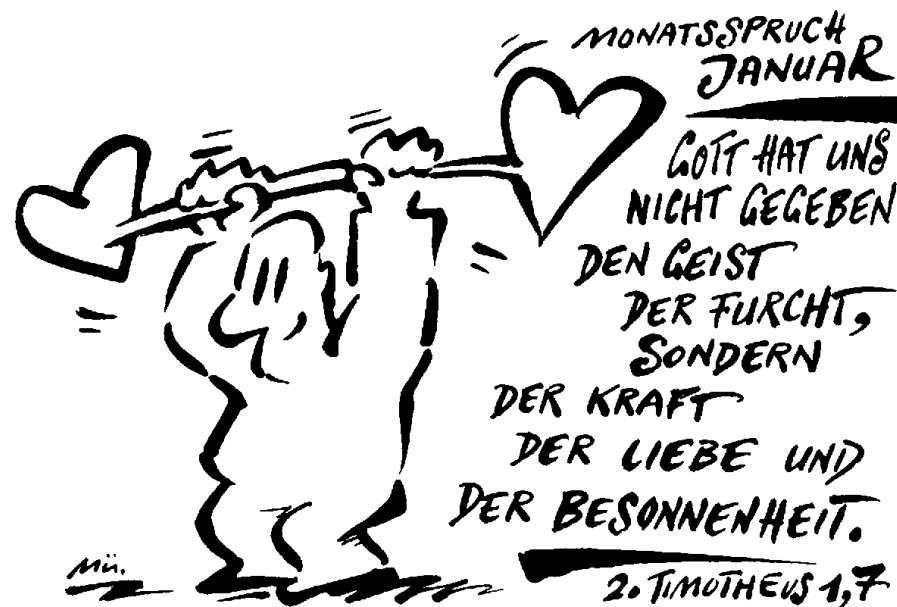 MONATSSPRUCH
JANUAR
GOTT HAT UNS
NICHT GEGEBEN
DEN GEIST
DER FURCHT,
SONDERN
DER KRAFT
DER LIEBE UND
DER BESONNENHEIT.
2. TIMOTHEUS 1,7
Mü.